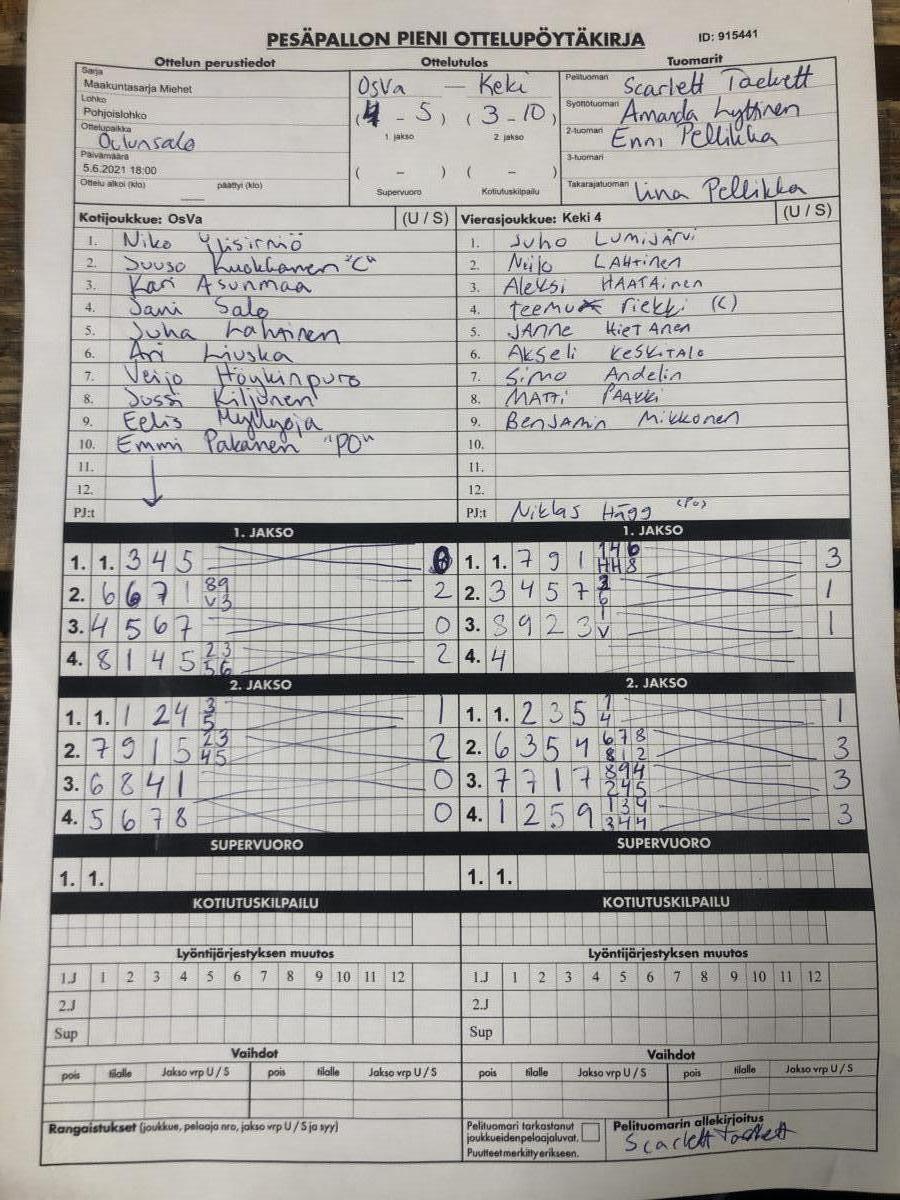 PESÄPALLON PIENI OTTELUPÖYTÄKIRJA ID: 915441
Ottelun perustiedot Ottelutulos Tuomarit
Sarja
Maakuntasarja Miehet
Lohko
Pohjoislohko
Ottelupaikka
Oulunsalo
Päivämäärä
5.6.2021 18:00
Ottelu alkoi (klo) päättyi (klo)
OsVa — Keki
(4 - 5) (3 - 10)
1. jakso 2. jakso
( - ) ( - )
Supervuoro Kotiutuskilpailu
Pelituomari Scarlett Tackett
Syöttötuomari Amanda Lyttinen
2-tuomari Enni Pellikka
3-tuomari
Takarajatuomari Iina Pellikka
Kotijoukkue: OsVa (U / S) Vierasjoukkue: Keki 4 (U / S)
1. Niko Ylisirniö 1. Juho LUMIJÄRVI
2. Juuso Kuokkanen "C" 2. Neilo LAHTINEN
3. Kari Asunmaa 3. Aleksi HAATAINEN
4. Jani Salo 4. teemu riekki (C)
5. Juha Lahtinen 5. JANNE HIETANEN
6. Ari Liuska 6. AKSELI KESKITALO
7. Veijo Höykinpuro 7. Simo Andelin
8. Jussi Kiljunen 8. MATTI PAAKKI
9. Eelis Myllyoja 9. BENJAMIN MIKKONEN
10. Emmi Pakanen "PO" 10.
11. 11.
12. 12.
PJ:t PJ:t Niklas Hägg (PO)
1. JAKSO 1. JAKSO
1. 1. 3 4 5 0 1. 1. 7 9 1 146 HH8 3
2. 6 6 7 1 89 V3 2 2. 3 4 5 7 1
3. 4 5 6 7 0 3. 8 9 2 3 1 V 1
4. 8 1 4 5 23 56 2 4. 4
2. JAKSO 2. JAKSO
1. 1. 1 2 4 3 5 1 1. 1. 2 3 5 1 4 1
2. 7 9 1 5 23 45 2 2. 6 3 5 4 678 812 3
3. 6 8 4 1 0 3. 7 7 1 7 894 245 3
4. 5 6 7 8 0 4. 1 2 5 9 134 344 3
SUPERVUORO SUPERVUORO
1. 1. 1. 1.
KOTIUTUSKILPAILU KOTIUTUSKILPAILU
Lyöntijärjestyksen muutos Lyöntijärjestyksen muutos
1.J 1 2 3 4 5 6 7 8 9 10 11 12 1.J 1 2 3 4 5 6 7 8 9 10 11 12
2.J 2.J
Sup Sup
Vaihdot Vaihdot
pois tilalle Jakso vrp U / S pois tilalle Jakso vrp U / S pois tilalle Jakso vrp U / S pois tilalle Jakso vrp U / S
Rangaistukset (joukkue, pelaaja nro, jakso vrp U / S ja syy)
Pelituomari tarkastanut
joukkueidenpelaajaluvat.
Puutteet merkitty erikseen.
Pelituomarin allekirjoitus
Scarlett Tackett